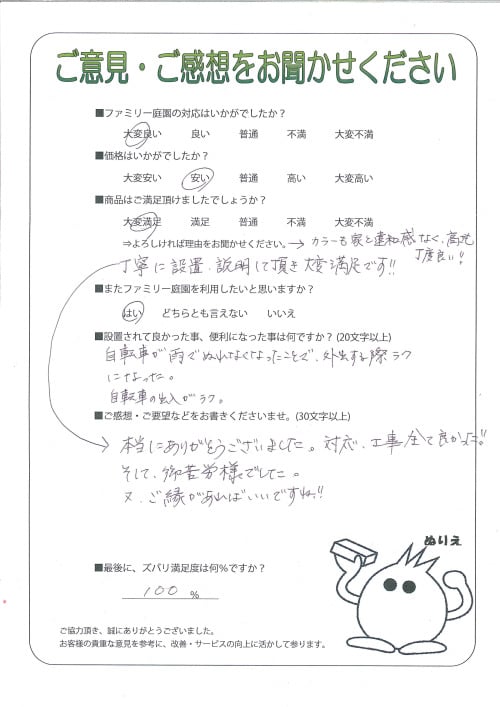 ご意見・ご感想をお聞かせください
■ファミリー庭園の対応はいかがでしたか？
大変良い 良い 普通 不満 大変不満
■価格はいかがでしたか？
大変安い 安い 普通 高い 大変高い
■商品はご満足頂けましたでしょうか？
大変満足 満足 普通 不満 大変不満
⇒よろしければ理由をお聞かせください。→ カラーも家と違和感なく、高さも
丁度良い！
丁寧に設置、説明して頂き大変満足です!!
■またファミリー庭園を利用したいと思いますか？
はい どちらとも言えない いいえ
■設置されて良かった事、便利になった事は何ですか？(20文字以上)
自転車が雨でぬれなくなったことで、外出する際ラク
になった。
自転車の出入がラク。
■ご感想・ご要望などをお書きくださいませ。(30文字以上)
本当にありがとうございました。対応、工事、全て良かった!!
そして、御苦労様でした。
又、ご縁があればいいですね!!
ぬりえ
■最後に、ズバリ満足度は何％ですか？
100 %
ご協力頂き、誠にありがとうございました。
お客様の貴重な意見を参考に、改善・サービスの向上に活かして参ります。